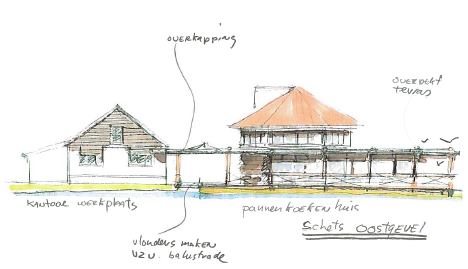 overkapping
overdekt
terras
kantoor werkplaats
pannenkoekenhuis
vlonders maken
v.z.v. balustrade
Schets oostgevel